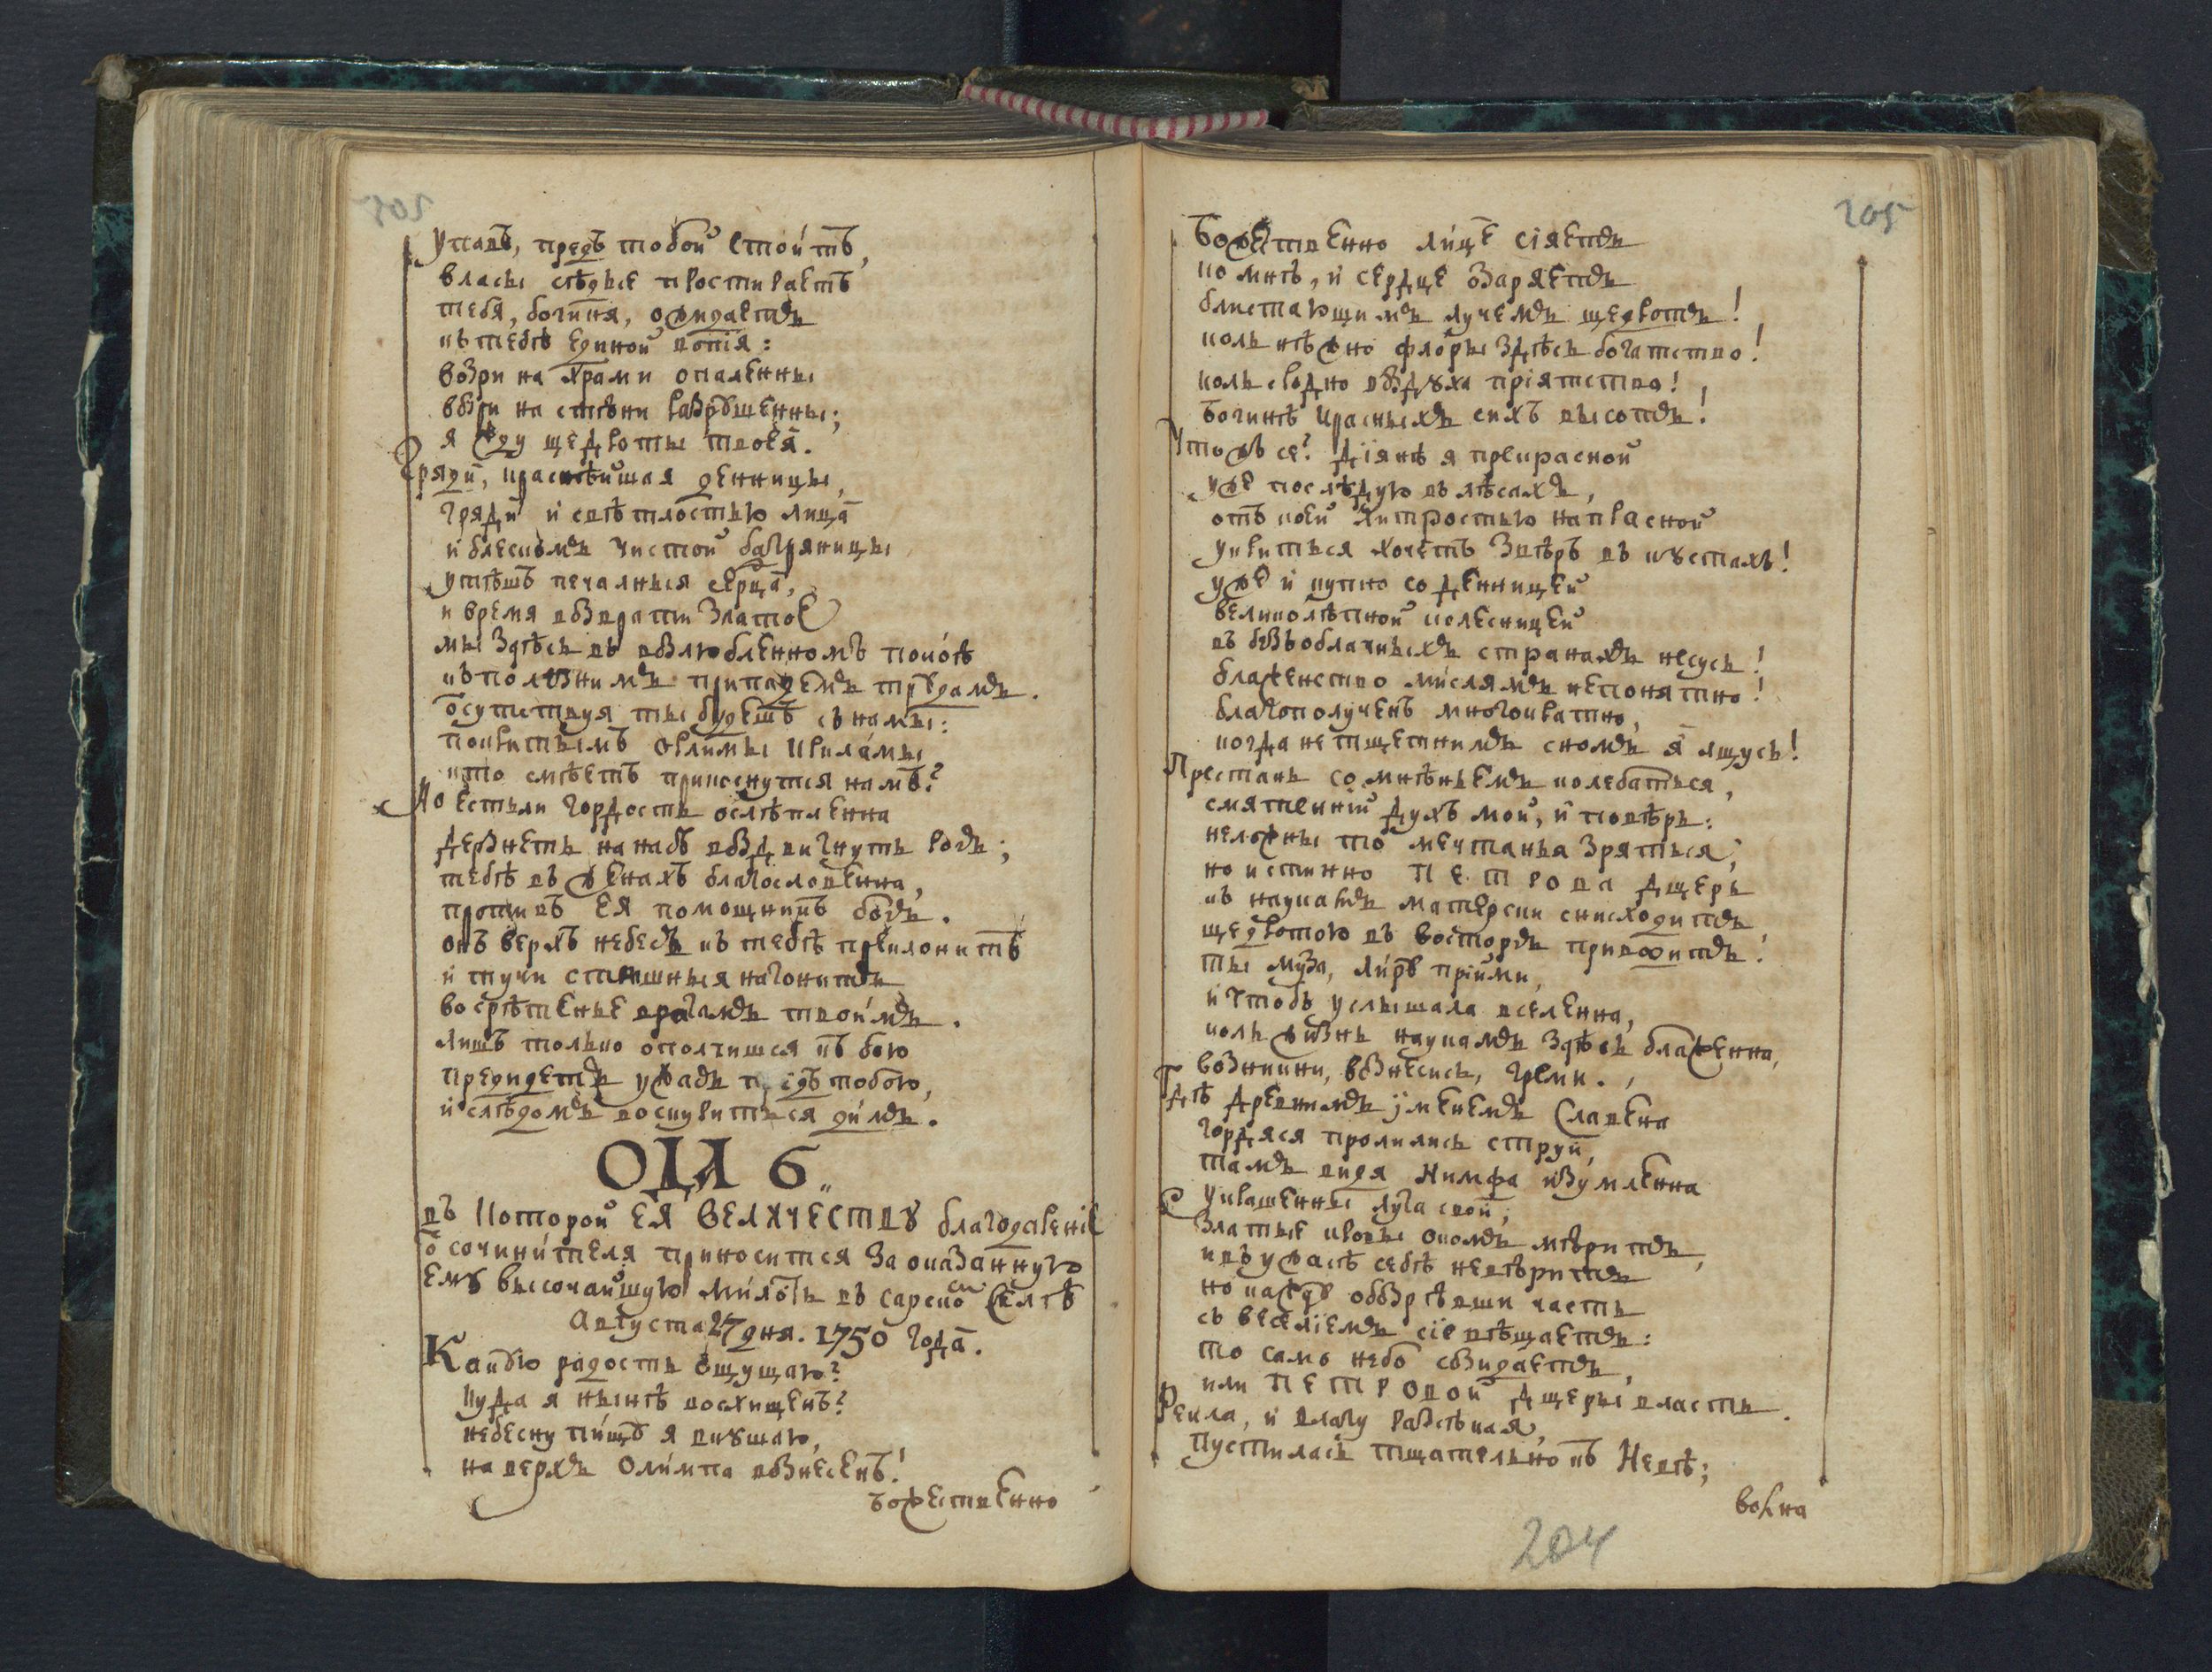 205
упавъ, предъ тобой стоитъ,
власы сѣдые простираетъ
тебя, богиня, ожидаетъ
къ тебѣ единой вопїя:
возри на храми опаленны
возри на стѣни разрꙋшенны;
я жду щедроты твоея.
Гряди, краснѣйшая денницы,
гряди и свѣтлостью лица
и блескомъ чистой багряницы
утѣшъ печалныя серца,
и время возврати златое
мы здѣсь въ возлюбленномъ покоѣ
къ полезнимъ припадемъ трꙋдамъ.
ѿсутствуя ты будешъ съ нами:
покритымъ орлими крилами
кто смѣетъ прикоснутся намъ?
Но естьли гордость ослѣпленна
дерзнетъ на насъ воздвигнуть рогъ;
тебѣ въ женахъ благословенна,
противъ ея помощникъ богъ.
онъ верхъ небесъ къ тебѣ преклонитъ
и тучи страшныя нагонитъ
во срѣтенье врагамъ твоимъ.
лишъ только ополчишся къ бою
предидетъ ужасъ предъ тобою,
и слѣдомъ воскуритьея димъ.
ОДА 6
въ которой ЕЯ ВЕЛИЧЕСТВꙊ благодареніе
ѿ сочинителя приносится за оказанную
емꙋ высочайшую милость въ сарскомъ селѣ
августа 27 дня. 1750 года.
Какꙋю радость ощущаю?
куда я нынѣ восхищенъ?
небесну пищꙋ я вкꙋшаю,
на верхъ Олимпа вознесенъ!
божественно
205
Божественно лице сіяетъ
ко мнѣ, и сердце озаряетъ
блистающимъ лучемъ щедротъ!
коль нѣжно флоры здѣсь богатство!
коль сродно воздꙋха пріятство!
богинѣ красныхъ сихъ высотъ!
Чтожъ се? Діянѣ я прекрасной
уже послѣдую въ лѣсахъ,
отъ коей хитростью напрасной
укриться хочетъ звѣръ въ кꙋстахъ!
уже и купно со денницей
великолѣпной колесницей
въ безъоблачныхъ странахъ несусь!
блаженство мислямъ непонятно!
благополученъ многократно,
когда нетщетнимъ сномъ я лщусь!
Престань сомнѣньемъ колебаться,
смятенній духъ мой, и повѣрь:
неложны то мечтанья зряться,
но истинно ПЕТРОВА дщерь
къ наукамъ матерски снисходитъ
щедротою въ восторгъ приводитъ!
ты мꙋза, лирꙋ пріими,
и чтобъ услышала вселенна,
коль жизнь наукамъ здѣсь блаженна,
возникни, вознесись, греми.
Гдѣ древнимъ именемъ Славена
гордяся пролились струи,
тамъ видя Нимфа изумленна
украшенны луга свои;
златые кровы окомъ мѣритъ,
и въ ужасѣ себѣ невѣритъ
но кажꙋ обозрѣвши часть
съ веселіемъ сіе вѣщаетъ:
то само небо созидаетъ,
или ПЕТРОВОЙ дщеры власть.
Рекла, и влагу разсѣкая,
пустилась тщательно къ Невѣ;
волна
204